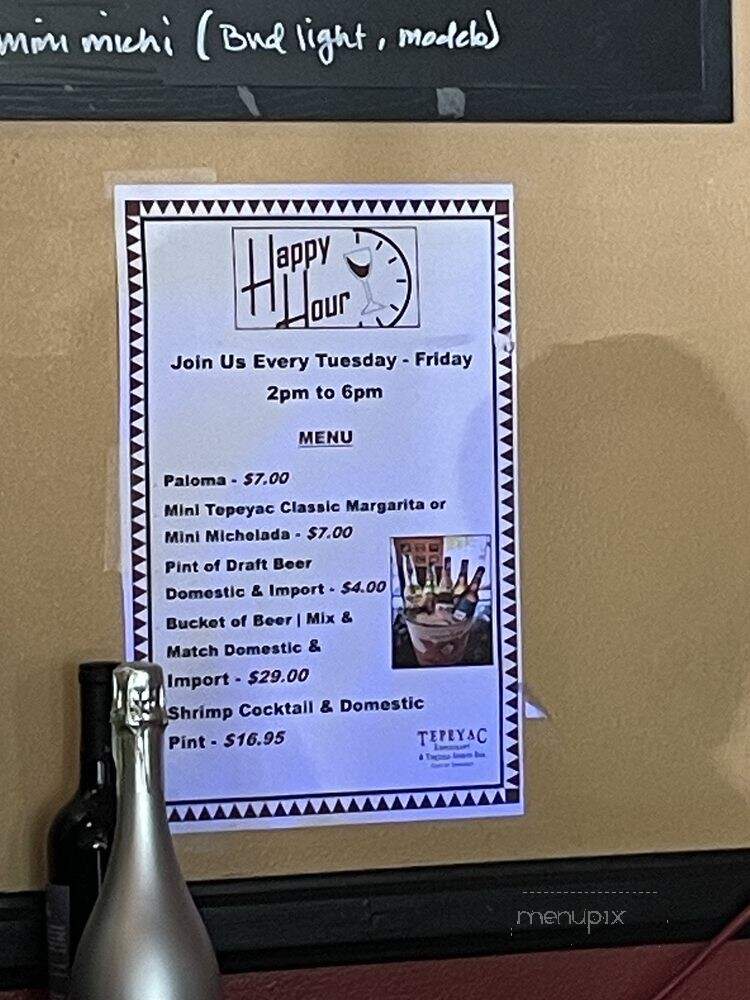 mini michi (Bud light, modelo)
Happy
Hour
Join Us Every Tuesday - Friday
2pm to 6pm
MENU
Paloma - $7.00
Mini Tepeyac Classic Margarita or
Mini Michelada - $7.00
Pint of Draft Beer
Domestic & Import - $4.00
Bucket of Beer | Mix &
Match Domestic &
Import - $29.00
Shrimp Cocktail & Domestic
Pint - $16.95
TEPEYAC
menupix